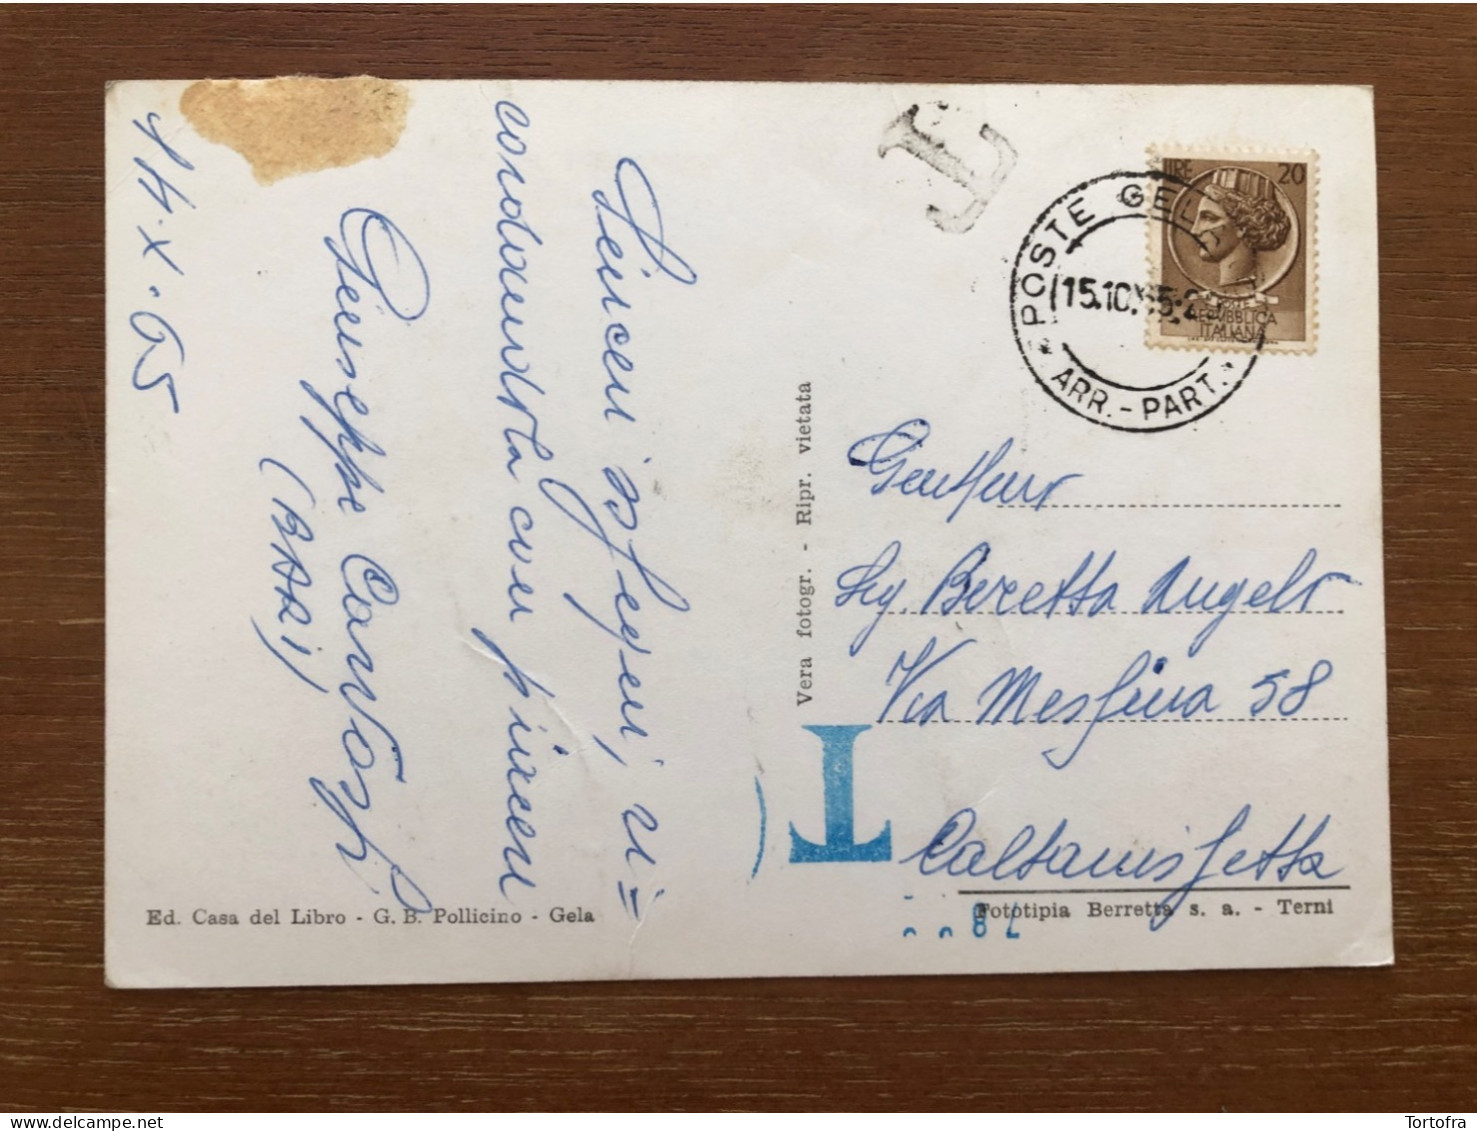 14.X.65
Sinceri ossequi, ri=
cordandola con piacere
Giuseppe
(BARI)
Ed. Casa del Libro - G. B. Pollicino - Gela
Vera fotogr. - Ripr. vietata
T
LIRE 20
REPVBBLICA
ITALIANA
POSTE GELA
15.10.65
ARR. - PART.
Sig. Beretta Angelo
Via Messina 58
Caltanissetta
T
Fototipia Berretta s. a. - Terni
78
Tortofra